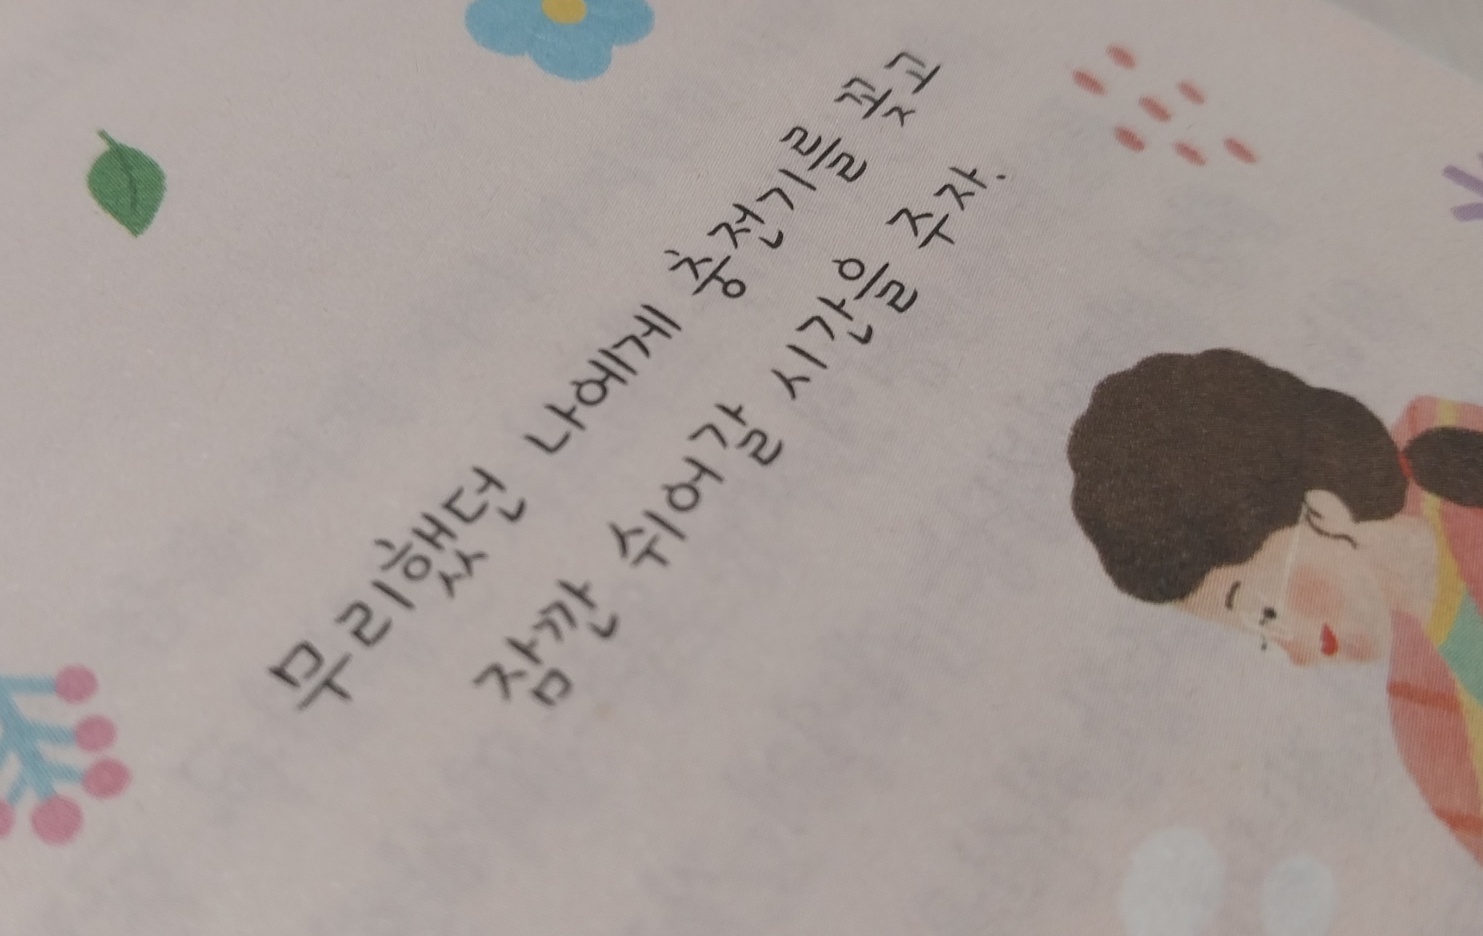 무리했던 나에게 충전기를 꽂고
잠깐 쉬어갈 시간을 주자.